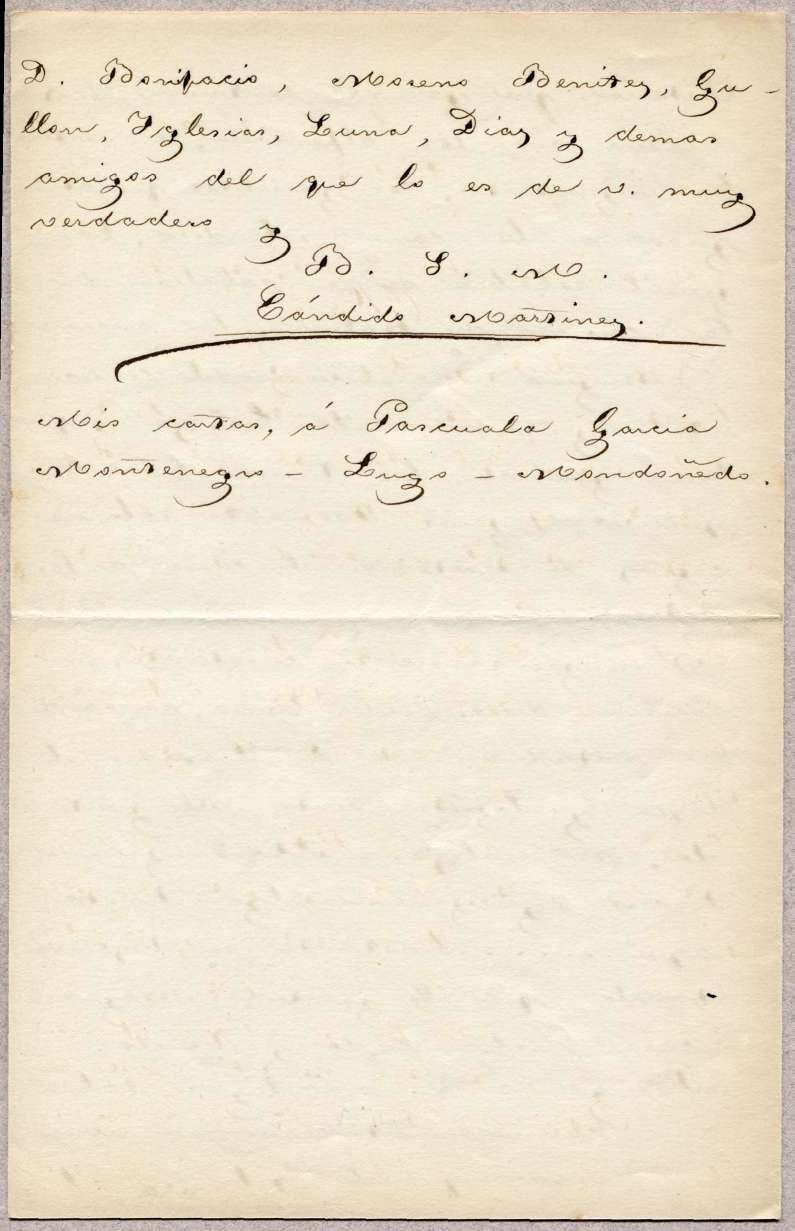 D. Bonifacio, Moreno Benitez, Gu-
llon, Yglesias, Luna, Diaz y demas
amigos del que lo es de v. muy
verdadero y
B. S. M.
Cándido Martinez.
Mis cartas, á Pascuala Garcia
Montenegro - Lugo - Mondoñedo.